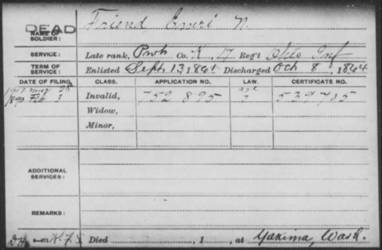 DEAD
NAME OF SOLDIER: Friend N.
SERVICE: Late rank, Co. K, 17 Reg't Ohio Inf
TERM OF SERVICE: Enlisted Sept. 13, 1861 Discharged Oct 8, 1864
DATE OF FILING. CLASS. APPLICATION NO. LAW. CERTIFICATE NO.
Invalid, 752 895 539 715
Widow,
Minor,
ADDITIONAL SERVICES:
REMARKS:
Died , 1 , at Yakima Wash.